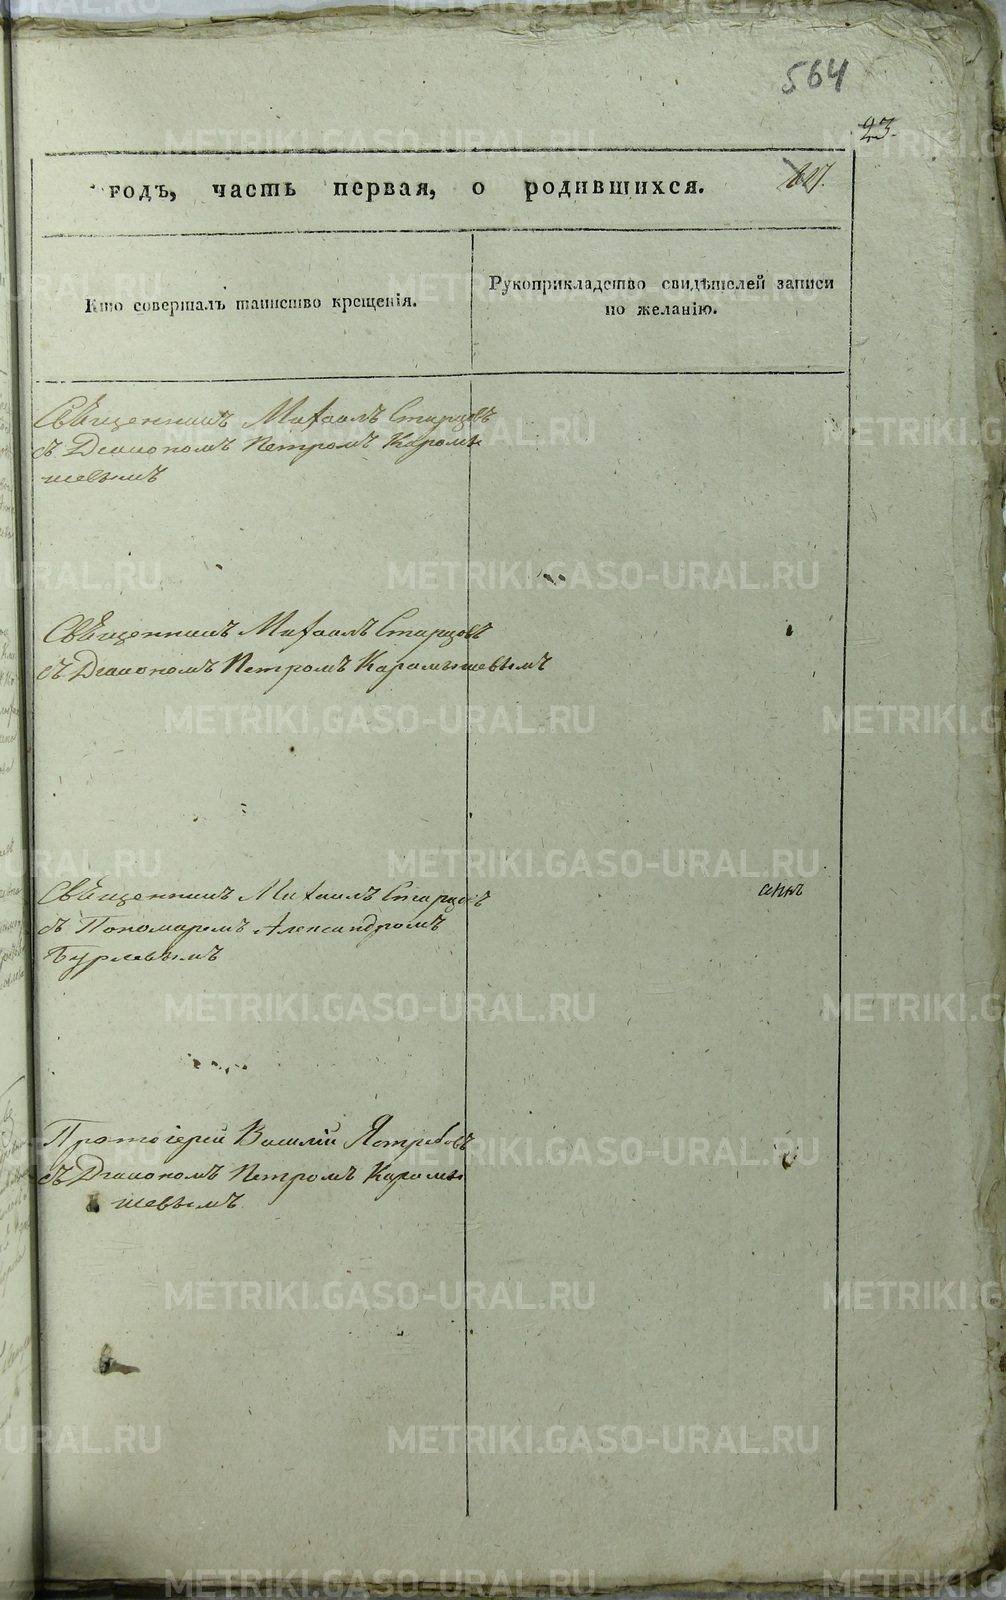 564
23.
годъ, часть первая, о родившихся.
Кто совершалъ таинство крещенія.
Рукоприкладство свидѣтелей записи
по желанію.
Священникъ Михаилъ Старцовъ
съ Діакономъ Петромъ Карамы
шевымъ
Священникъ Михаилъ Старцовъ
съ Діакономъ Петромъ Карамышевымъ
Священникъ Михаилъ Старцовъ
съ Пономаремъ Александромъ
Бурлевымъ
Протоіерей Василій Ястребовъ
съ Діакономъ Петромъ Карамы
шевымъ
METRIKI.GASO-URAL.RU